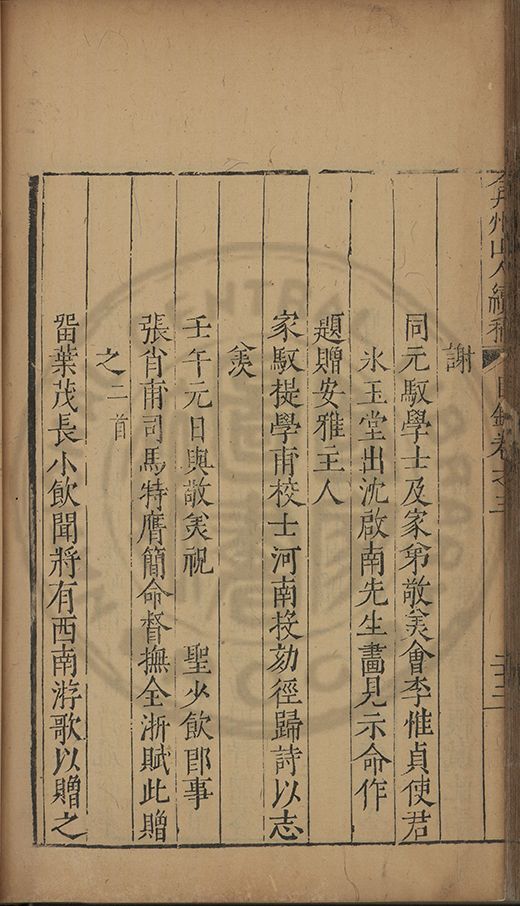 弇州山人續稿 目錄卷之三
謝
同元馭學士及家弟敬美會李惟貞使君
氷玉堂出沈啟南先生畫見示命作
題贈安雅主人
家馭提學甫校士河南投劾徑歸詩以志
羨
壬午元日與敬美祝 聖少飲即事
張肖甫司馬特膺簡命督撫全浙賦此贈
之二首
畱葉茂長小飲聞將有西南游歌以贈之